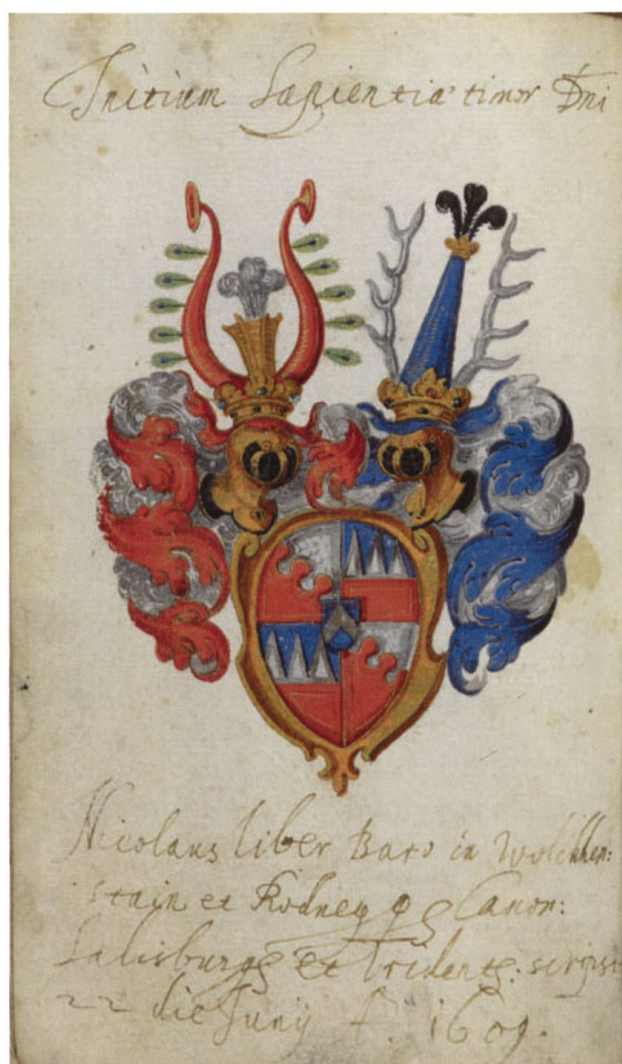 Initium Sapientiæ timor Dni
Nicolaus liber Baro in Wolckhen:
stain et Rodnegg Canon:
Salisburg et Trident: scripsit
22 die Junÿ A. 1609.